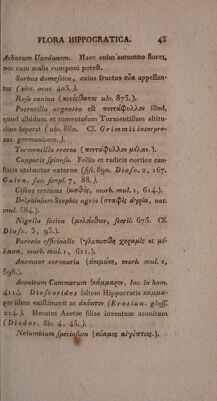 FLORA HIPPOCRATICA. 43
Arbutum Unedonem. Haec enim autumno floret,
nec cum malis componi potest.
Sorbus domestica, cuius fructus οὖα appellan-
tur (vict. acut. 403.).
Rosa canina (κυνόσβατος ulc. 875.).
Potentilla argentea est πεντάφυλλον illud,
quod albidum et tomentosum Tormentillam altitu-
dine superat (ulc. 880. Cf. Grimmii interpre-
tat. germanicam.).
Tormentilla erecta (πεντάφυλλον μέλαν.).
Capparis spinosa. Foliis et radicis cortice cau-
sticis utebantur externe (fist. 890. Diosc. 2, 167.
Galen. fac. simpl. 7, 88.).
Cistus creticus (κισθὸς, morb. mul. 1, 614.).
Delphinium Staphis agria (σταφὶς ἀγρία, nat.
mul. 584.).
Nigella sativa (μελάνθιον, steril. 675. Cf.
Diosc. 3, 93.).
Paeonia officinalis (γλυκυσίδη
λανα, morb. mul. 1, 611.).
Anemone coronaria (ἀνεμώνη, morb. mul. 1,
598.).
Aconitum Cammarum (κάμμαρον, loc. in hom.
411.). Dioscorides saltem Hippocratis κάμμα-
ρον idem existimavit ac ἀκόνιτον (Erotian. gloss.
214.). Hecates Aeetae filiae inventum aconitum
(Diodor. Sic. 4, 45.).
Nelumbium speciosum (κύαμος αἰγύπτιος.).